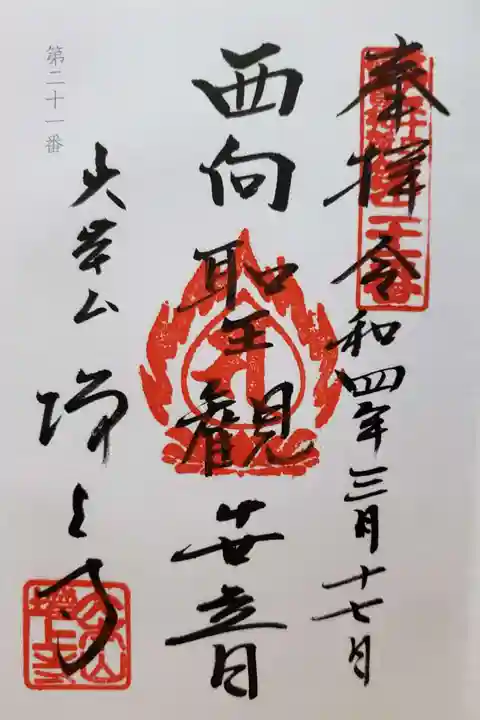 奉拝 令和四年三月十七日
西向聖観世音
大本山 増上寺
第二十一番